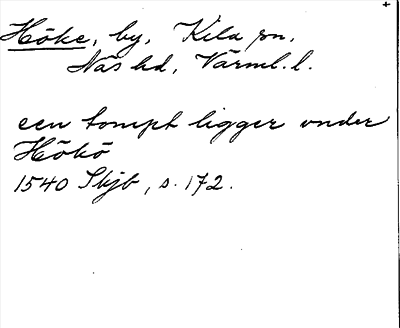 Höke, by, Kila sn,
Näs hd, Värml. l.
een tompt ligger vnder
Hökö
1540 Skjb, s. 172.